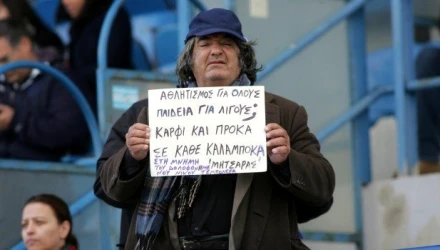 ΑΘΛΗΤΙΣΜΟΣ ΓΙΑ ΟΛΟΥΣ
ΠΑΙΔΕΙΑ ΓΙΑ ΛΙΓΟΥΣ;
ΚΑΡΦΙ ΚΑΙ ΠΡΟΚΑ
ΣΕ ΚΑΘΕ ΚΑΛΑΜΠΟΚΑ
ΣΤΗ ΜΝΗΜΗ ΜΗΤΣΑΡΑΣ!
ΤΟΥ
ΝΙΚΟΥ